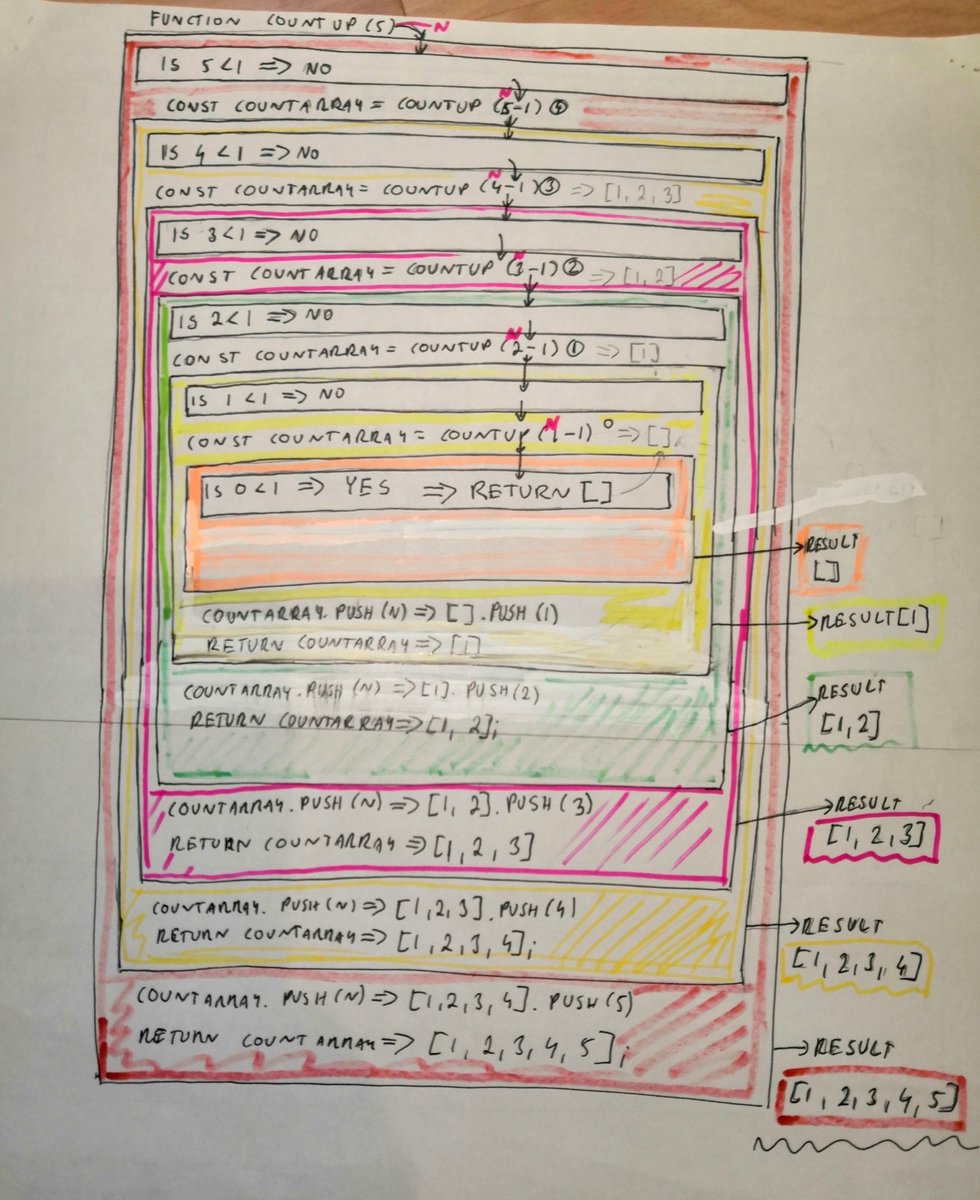 FUNCTION COUNTUP(5) N
IS 5<1 => NO
N
CONST COUNTARRAY = COUNTUP (5-1) ④
IS 4<1 => NO
N
CONST COUNTARRAY = COUNTUP (4-1) ③ => [1, 2, 3]
IS 3<1 => NO
N
CONST COUNTARRAY = COUNTUP (3-1) ② => [1, 2]
IS 2<1 => NO
N
CONST COUNTARRAY = COUNTUP (2-1) ① => [1]
IS 1<1 => NO
N
CONST COUNTARRAY = COUNTUP (1-1) 0 => []
IS 0<1 => YES => RETURN []
RESULT
[]
COUNTARRAY.PUSH(N) => [].PUSH(1)
RESULT[1]
RETURN COUNTARRAY => [1]
COUNTARRAY.PUSH(N) => [1].PUSH(2)
RESULT
RETURN COUNTARRAY => [1, 2];
[1,2]
COUNTARRAY.PUSH(N) => [1, 2].PUSH(3)
RESULT
RETURN COUNTARRAY => [1, 2, 3]
[1, 2, 3]
COUNTARRAY. PUSH(N) => [1,2,3].PUSH(4)
RESULT
RETURN COUNTARRAY => [1, 2, 3, 4];
[1, 2, 3, 4]
COUNTARRAY. PUSH(N) => [1,2,3,4].PUSH(5)
RETURN COUNTARRAY => [1, 2, 3, 4, 5];
RESULT
[1, 2, 3, 4, 5]